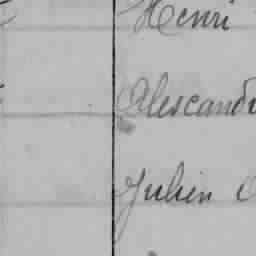 Henri
Alexand
Julien